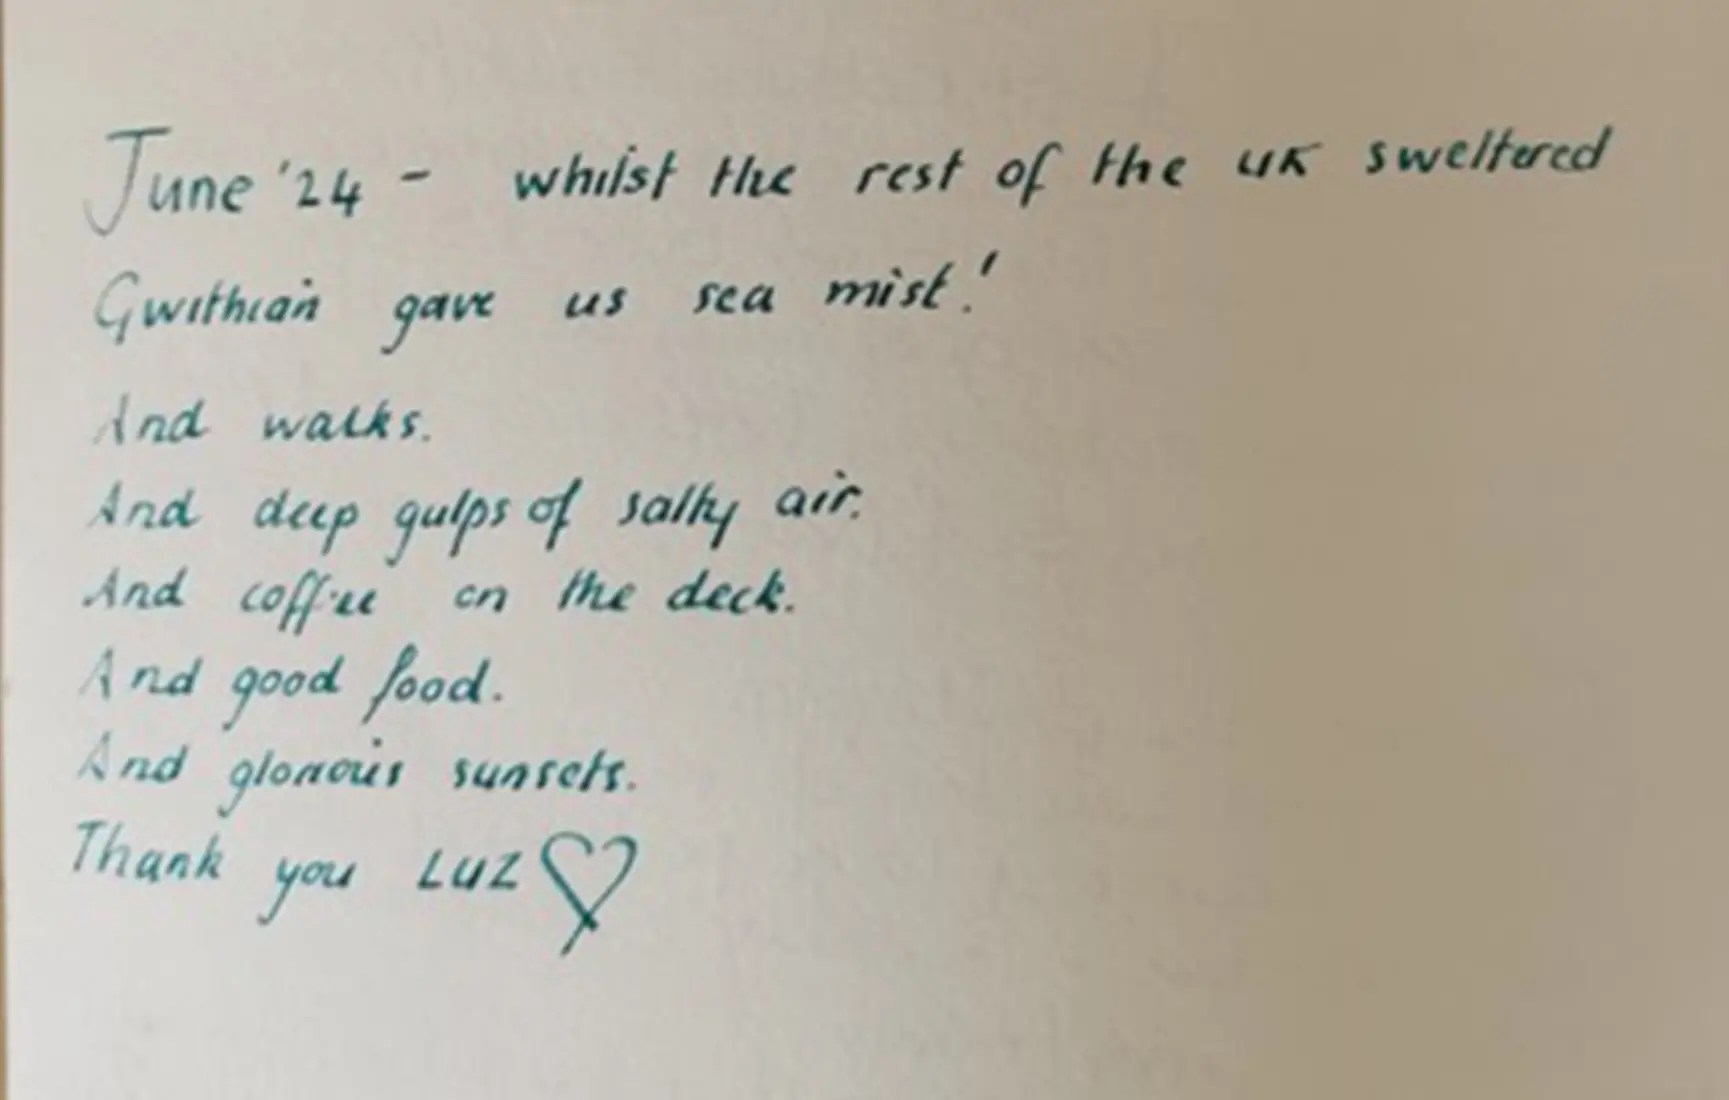 June '24 - whilst the rest of the UK sweltered
Gwithian gave us sea mist!
And walks.
And deep gulps of salty air.
And coffee on the deck.
And good food.
And glorious sunsets.
Thank you LUZ ♡